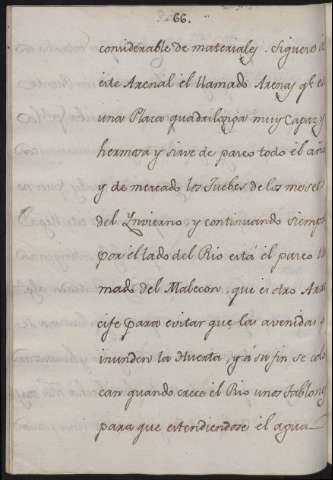 66.
considerable de materiales. Sigueno à
este Arenal el llamado Arenas q.e es
una Plaza quadrilonga muy Capaz y
hermosa y sirve de paseo todo el año
y de mercado los Juebes de los meses
del Invierno, y continuando siempre
por el lado del Rio está el paseo lla
mado del Malecon, que es otro Arra
cife para evitar que las avenidas
inunden la Huerta, y á su fin se colo
can quando crece el Rio unos tablones
para que estendiendose el agua